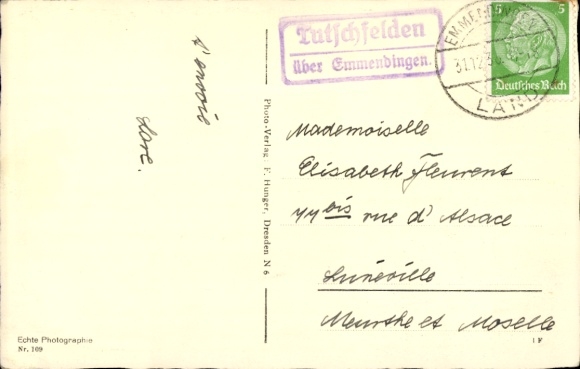 Tutschfelden
über Emmendingen.
EMMENDINGEN
31.12.36
LAND
5 5
Deutsches Reich
t'envoie
Lore.
Photo-Verlag F. Hunger, Dresden N 6
Mademoiselle
Elisabeth Fleurent
44 bis rue d'Alsace
Lunéville
Meurthe et Moselle
Echte Photographie
Nr. 109
1 F